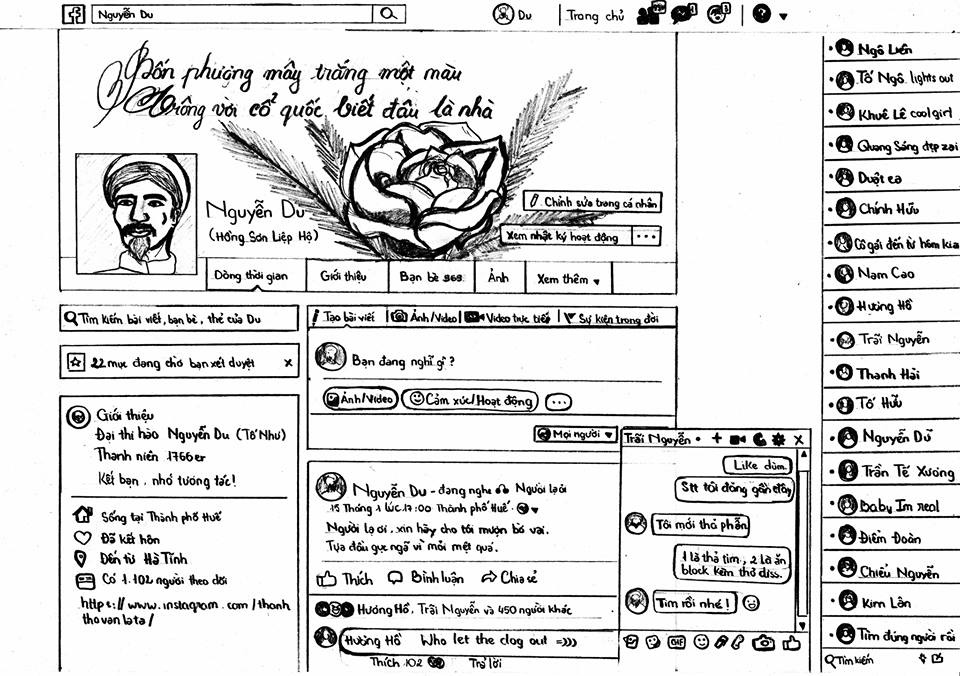 Nguyễn Du
Du
Trang chủ
Bốn phương mây trắng một màu
Trông vời cố quốc biết đâu là nhà
Nguyễn Du
(Hồng Sơn Liệp Hộ)
Chỉnh sửa trang cá nhân
Xem nhật ký hoạt động ...
Dòng thời gian
Giới thiệu
Bạn bè 969
Ảnh
Xem thêm
Tìm kiếm bài viết, bạn bè, thẻ của Du
22 mục đang chờ bạn xét duyệt x
Giới thiệu
Đại thi hào Nguyễn Du (Tố Như)
Thanh niên 1766er
Kết bạn, nhớ tương tác!
Sống tại Thành phố Huế
Đã kết hôn
Đến từ Hà Tĩnh
Có 1.102 người theo dõi
https://www.instagram.com/thanh
thovanlata/
Tạo bài viết
Ảnh/Video
Video trực tiếp
Sự kiện trong đời
Bạn đang nghĩ gì?
Ảnh/Video
Cảm xúc/Hoạt động
...
Mọi người
Nguyễn Du - đang nghe Người lạ ơi
15 Tháng 1 lúc 17:00 Thành phố Huế
Người lạ ơi, xin hãy cho tôi mượn bờ vai.
Tựa đầu gục ngã vì mỏi mệt quá.
Thích
Bình luận
Chia sẻ
Hương Hồ, Trãi Nguyễn và 450 người khác
Hương Hồ Who let the dog out =)))
Thích 102
Trả lời
Trãi Nguyễn
Like dùm
Stt tôi đăng gần đây
Tôi mới thả phẫn
1 là thả tim, 2 là ăn
block kèm thơ diss.
Tim rồi nhé!
GIF
Ngô Liền
Tố Ngô lights out
Khuê Lê cool girl
Quang Sáng đẹp zai
Duật ca
Chính Hữu
Cô gái đến từ hôm kia
Nam Cao
Hương Hồ
Trãi Nguyễn
Thanh Hải
Tố Hữu
Nguyễn Dữ
Trần Tế Xương
Baby Im real
Điểm Đoàn
Chiểu Nguyễn
Kim Lân
Tìm đúng người rồi
Tìm kiếm